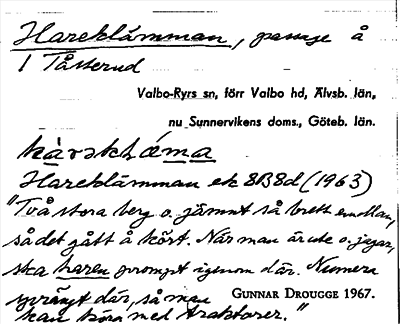 Hareklämman, passage å
1 Tåsserud
Valbo-Ryrs sn, förr Valbo hd, Älvsb. län,
nu Sunnervikens doms., Göteb. län.
Hareklämman ek 8B8d (1963)
"Två stora berg o. jämnt så brett emellan,
så det gått å kört. När man är ute o. jagar,
ska haren prompt igenom där. Numera
sprängt där, så man GUNNAR DROUGGE 1967.
kan köra med traktorer."